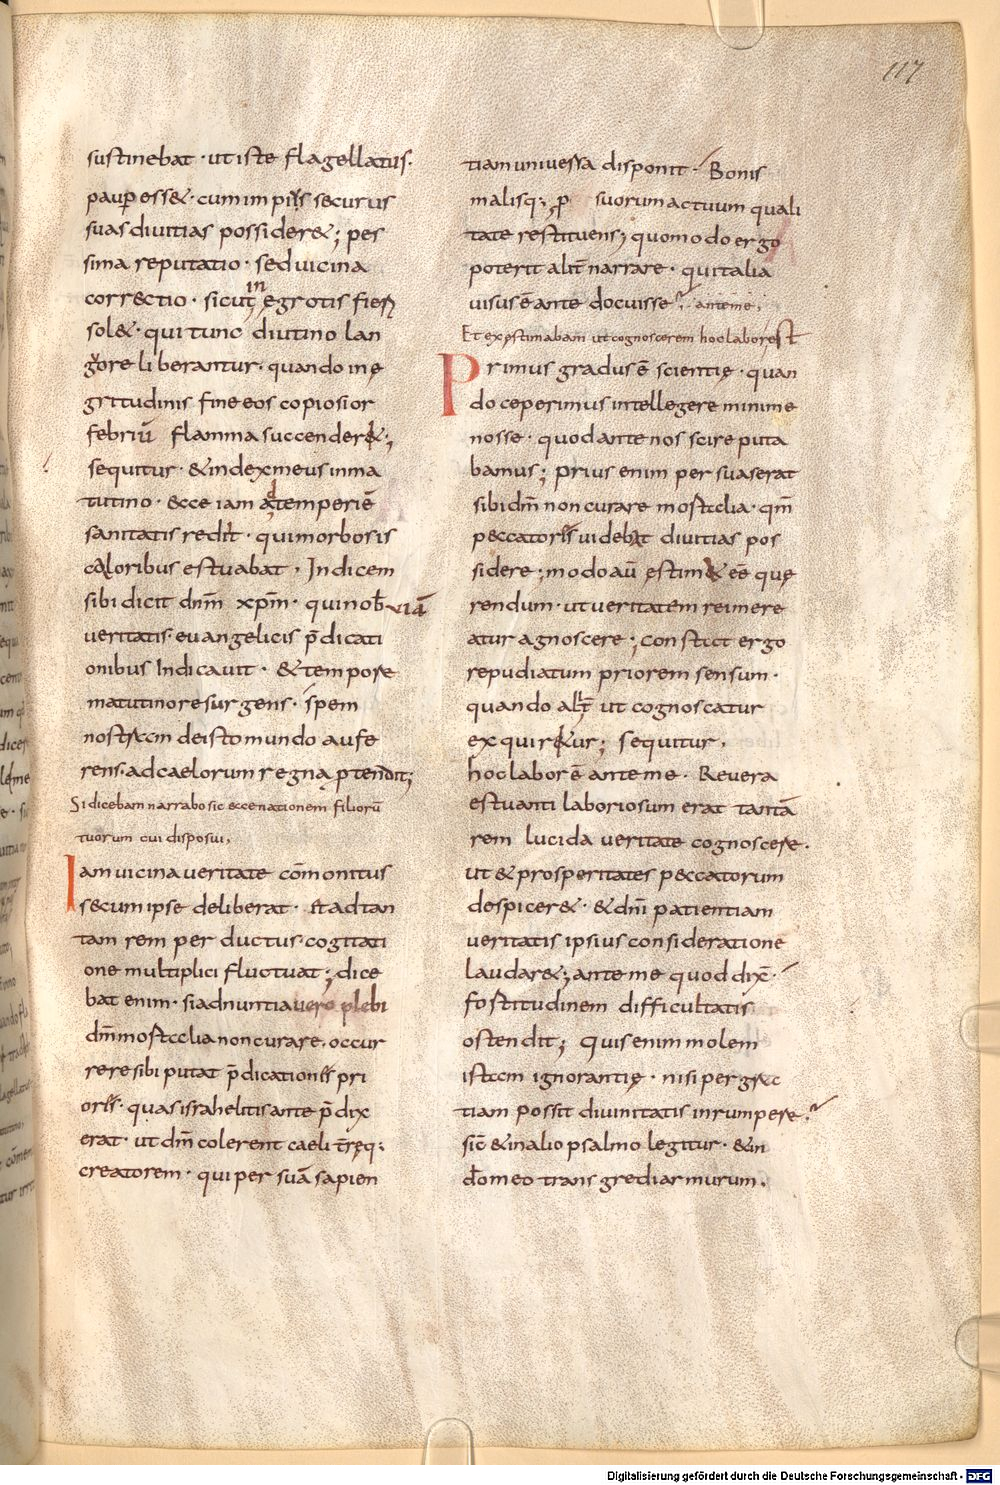 117
sustinebat · ut iste flagellatus ·
paup esse& · cum impiis securus
suas diuitias posside&; pes
sima reputatio · sed uicina
correctio · sicut in egrotis fieri
sole& · qui tunc diutino lan
gore liberantur · quando in ę
gritudinis fine eos copiosior
febriū flamma succende&;
sequitur · & index meus in ma
tutino · ecce iam ad temperiē
sanitatis redit · qui morbosis
caloribus estuabat · Indicem
sibi dicit dnm̄ xp̄m · qui nob uiā
ueritatis euangelicis p̄dicati
onibus Indicauit · & tempore
matutino resurgens · spem
nostram de isto mundo aufe
rens · ad caelorum regna ptendit;
Si dicebam narrabo sic ecce nationem filiorū
tuorum cui disposui,
Iam uicina ueritate cōmonitus
secum ipse deliberat · Et ad tan
tam rem perductus cogitati
one multiplici fluctuat; dice
bat enim · si adnuntiauero plebi
dm̄ mostalia non curare, occur
rere sibi putat p̄dicationis pri
oris · quas israhelitis ante p̄dix
erat · ut dm̄ colerent caeli t̄ręq;
creatorem · qui per suā sapien
tiam uniuersa disponit · Bonis
malisq; p suorum actuum quali
tate restituens; quomodo ergo
poterit alit̄ narrare · qui talia
uisus ē ante docuisse? ante me,
Et exęstimabam ut cognoscerem hoc labor est
Primus gradus ē scientię · quan
do ceperimus intellegere minime
nosse · quod ante nos scire puta
bamus; prius enim persuaserat
sibi dm̄ non curare mostalia · qm̄
peccatoris uidebat diuitias pos
sidere; modo aū ęstim& eē quę
rendum · ut ueritatem reimere
atur agnoscere; constat ergo
repudiatum priorem sensum ·
quando alt̄ ut cognoscatur
exquir&ur; sequitur,
hoc labor ē ante me · Reuera
estuanti laboriosum erat tantā
rem lucida ueritate cognoscere.
ut & prosperitates peccatorum
despicere& · & dm̄ patientiam
ueritatis ipsius consideratione
laudare&; ante me quod dix̄ ·
fostitudinem difficultatis
ostendit; Quis enim molem
istam ignorantię · nisi per gra
tiam possit diuinitatis inrumpere?
sic̄ & in alio psalmo legitur · & in
do meo transgrediar murum.
Digitalisierung gefördert durch die Deutsche Forschungsgemeinschaft - DFG